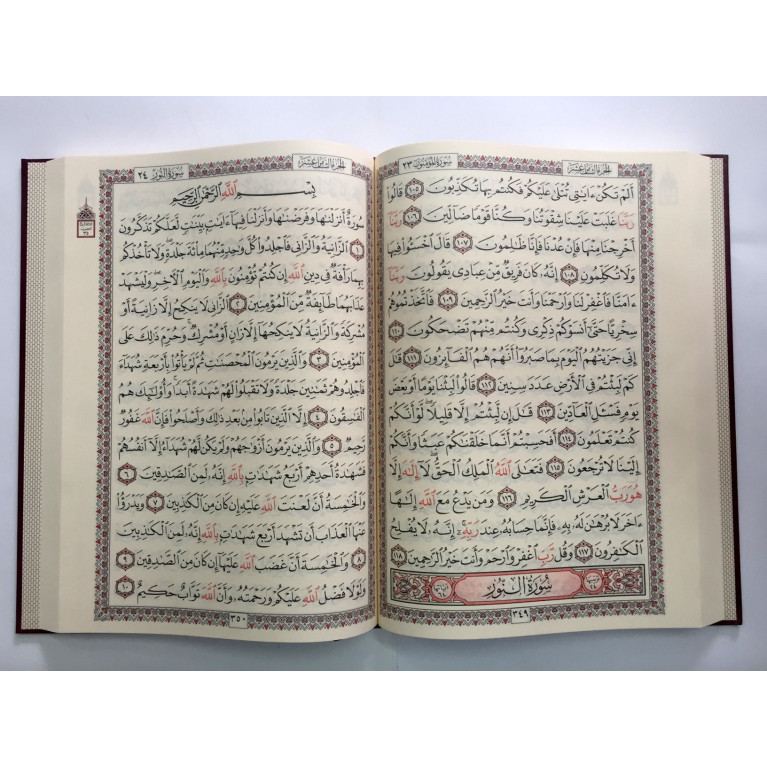 سورة المؤمنون ٢٣
الجزء الثامن عشر
أَلَمْ تَكُنْ ءَايَٰتِى تُتْلَىٰ عَلَيْكُمْ فَكُنتُم بِهَا تُكَذِّبُونَ ١٠٥ قَالُوا۟
رَبَّنَا غَلَبَتْ عَلَيْنَا شِقْوَتُنَا وَكُنَّا قَوْمًا ضَآلِّينَ ١٠٦ رَبَّنَآ
أَخْرِجْنَا مِنْهَا فَإِنْ عُدْنَا فَإِنَّا ظَٰلِمُونَ ١٠٧ قَالَ ٱخْسَـُٔوا۟ فِيهَا
وَلَا تُكَلِّمُونِ ١٠٨ إِنَّهُۥ كَانَ فَرِيقٌ مِّنْ عِبَادِى يَقُولُونَ رَبَّنَآ
ءَامَنَّا فَٱغْفِرْ لَنَا وَٱرْحَمْنَا وَأَنتَ خَيْرُ ٱلرَّٰحِمِينَ ١٠٩ فَٱتَّخَذْتُمُوهُمْ
سِخْرِيًّا حَتَّىٰٓ أَنسَوْكُمْ ذِكْرِى وَكُنتُم مِّنْهُمْ تَضْحَكُونَ ١١٠
إِنِّى جَزَيْتُهُمُ ٱلْيَوْمَ بِمَا صَبَرُوٓا۟ أَنَّهُمْ هُمُ ٱلْفَآئِزُونَ ١١١ قَٰلَ
كَمْ لَبِثْتُمْ فِى ٱلْأَرْضِ عَدَدَ سِنِينَ ١١٢ قَالُوا۟ لَبِثْنَا يَوْمًا أَوْ بَعْضَ
يَوْمٍ فَسْـَٔلِ ٱلْعَآدِّينَ ١١٣ قَٰلَ إِن لَّبِثْتُمْ إِلَّا قَلِيلًا لَّوْ أَنَّكُمْ
كُنتُمْ تَعْلَمُونَ ١١٤ أَفَحَسِبْتُمْ أَنَّمَا خَلَقْنَٰكُمْ عَبَثًا وَأَنَّكُمْ
إِلَيْنَا لَا تُرْجَعُونَ ١١٥ فَتَعَٰلَى ٱللَّهُ ٱلْمَلِكُ ٱلْحَقُّ لَآ إِلَٰهَ إِلَّا
هُوَ رَبُّ ٱلْعَرْشِ ٱلْكَرِيمِ ١١٦ وَمَن يَدْعُ مَعَ ٱللَّهِ إِلَٰهًا
ءَاخَرَ لَا بُرْهَٰنَ لَهُۥ بِهِۦ فَإِنَّمَا حِسَابُهُۥ عِندَ رَبِّهِۦٓ إِنَّهُۥ لَا يُفْلِحُ
ٱلْكَٰفِرُونَ ١١٧ وَقُل رَّبِّ ٱغْفِرْ وَٱرْحَمْ وَأَنتَ خَيْرُ ٱلرَّٰحِمِينَ ١١٨
سُورَةُ النُّورِ
٣٤٩
الجزء الثامن عشر
سورة النور ٢٤
بِسْمِ ٱللَّهِ ٱلرَّحْمَٰنِ ٱلرَّحِيمِ
سُورَةٌ أَنزَلْنَٰهَا وَفَرَضْنَٰهَا وَأَنزَلْنَا فِيهَآ ءَايَٰتٍۭ بَيِّنَٰتٍ لَّعَلَّكُمْ تَذَكَّرُونَ
١ ٱلزَّانِيَةُ وَٱلزَّانِى فَٱجْلِدُوا۟ كُلَّ وَٰحِدٍ مِّنْهُمَا مِا۟ئَةَ جَلْدَةٍ وَلَا تَأْخُذْكُم
بِهِمَا رَأْفَةٌ فِى دِينِ ٱللَّهِ إِن كُنتُمْ تُؤْمِنُونَ بِٱللَّهِ وَٱلْيَوْمِ ٱلْءَاخِرِ وَلْيَشْهَدْ
عَذَابَهُمَا طَآئِفَةٌ مِّنَ ٱلْمُؤْمِنِينَ ٢ ٱلزَّانِى لَا يَنكِحُ إِلَّا زَانِيَةً أَوْ
مُشْرِكَةً وَٱلزَّانِيَةُ لَا يَنكِحُهَآ إِلَّا زَانٍ أَوْ مُشْرِكٌ وَحُرِّمَ ذَٰلِكَ عَلَى
ٱلْمُؤْمِنِينَ ٣ وَٱلَّذِينَ يَرْمُونَ ٱلْمُحْصَنَٰتِ ثُمَّ لَمْ يَأْتُوا۟ بِأَرْبَعَةِ شُهَدَآءَ
فَٱجْلِدُوهُمْ ثَمَٰنِينَ جَلْدَةً وَلَا تَقْبَلُوا۟ لَهُمْ شَهَٰدَةً أَبَدًا وَأُو۟لَٰٓئِكَ هُمُ
ٱلْفَٰسِقُونَ ٤ إِلَّا ٱلَّذِينَ تَابُوا۟ مِنۢ بَعْدِ ذَٰلِكَ وَأَصْلَحُوا۟ فَإِنَّ ٱللَّهَ غَفُورٌ
رَّحِيمٌ ٥ وَٱلَّذِينَ يَرْمُونَ أَزْوَٰجَهُمْ وَلَمْ يَكُن لَّهُمْ شُهَدَآءُ إِلَّآ أَنفُسُهُمْ
فَشَهَٰدَةُ أَحَدِهِمْ أَرْبَعُ شَهَٰدَٰتٍۭ بِٱللَّهِ إِنَّهُۥ لَمِنَ ٱلصَّٰدِقِينَ ٦
وَٱلْخَٰمِسَةُ أَنَّ لَعْنَتَ ٱللَّهِ عَلَيْهِ إِن كَانَ مِنَ ٱلْكَٰذِبِينَ ٧ وَيَدْرَؤُا۟
عَنْهَا ٱلْعَذَابَ أَن تَشْهَدَ أَرْبَعَ شَهَٰدَٰتٍۭ بِٱللَّهِ إِنَّهُۥ لَمِنَ ٱلْكَٰذِبِينَ
٨ وَٱلْخَٰمِسَةَ أَنَّ غَضَبَ ٱللَّهِ عَلَيْهَآ إِن كَانَ مِنَ ٱلصَّٰدِقِينَ ٩
وَلَوْلَا فَضْلُ ٱللَّهِ عَلَيْكُمْ وَرَحْمَتُهُۥ وَأَنَّ ٱللَّهَ تَوَّابٌ حَكِيمٌ ١٠
٣٥٠